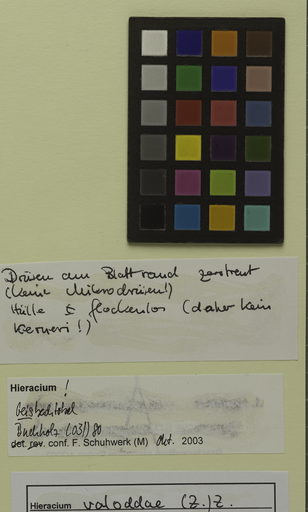 Drüsen am Blattrand zerstreut
(keine Mikrodrüsen!)
Hülle ± flockenlos (daher kein
kerneri!)
Hieracium !
Buchholz (031) 80
det. rev. conf. F. Schuhwerk (M) Okt. 2003
Hieracium valoddae (Z.) Z.